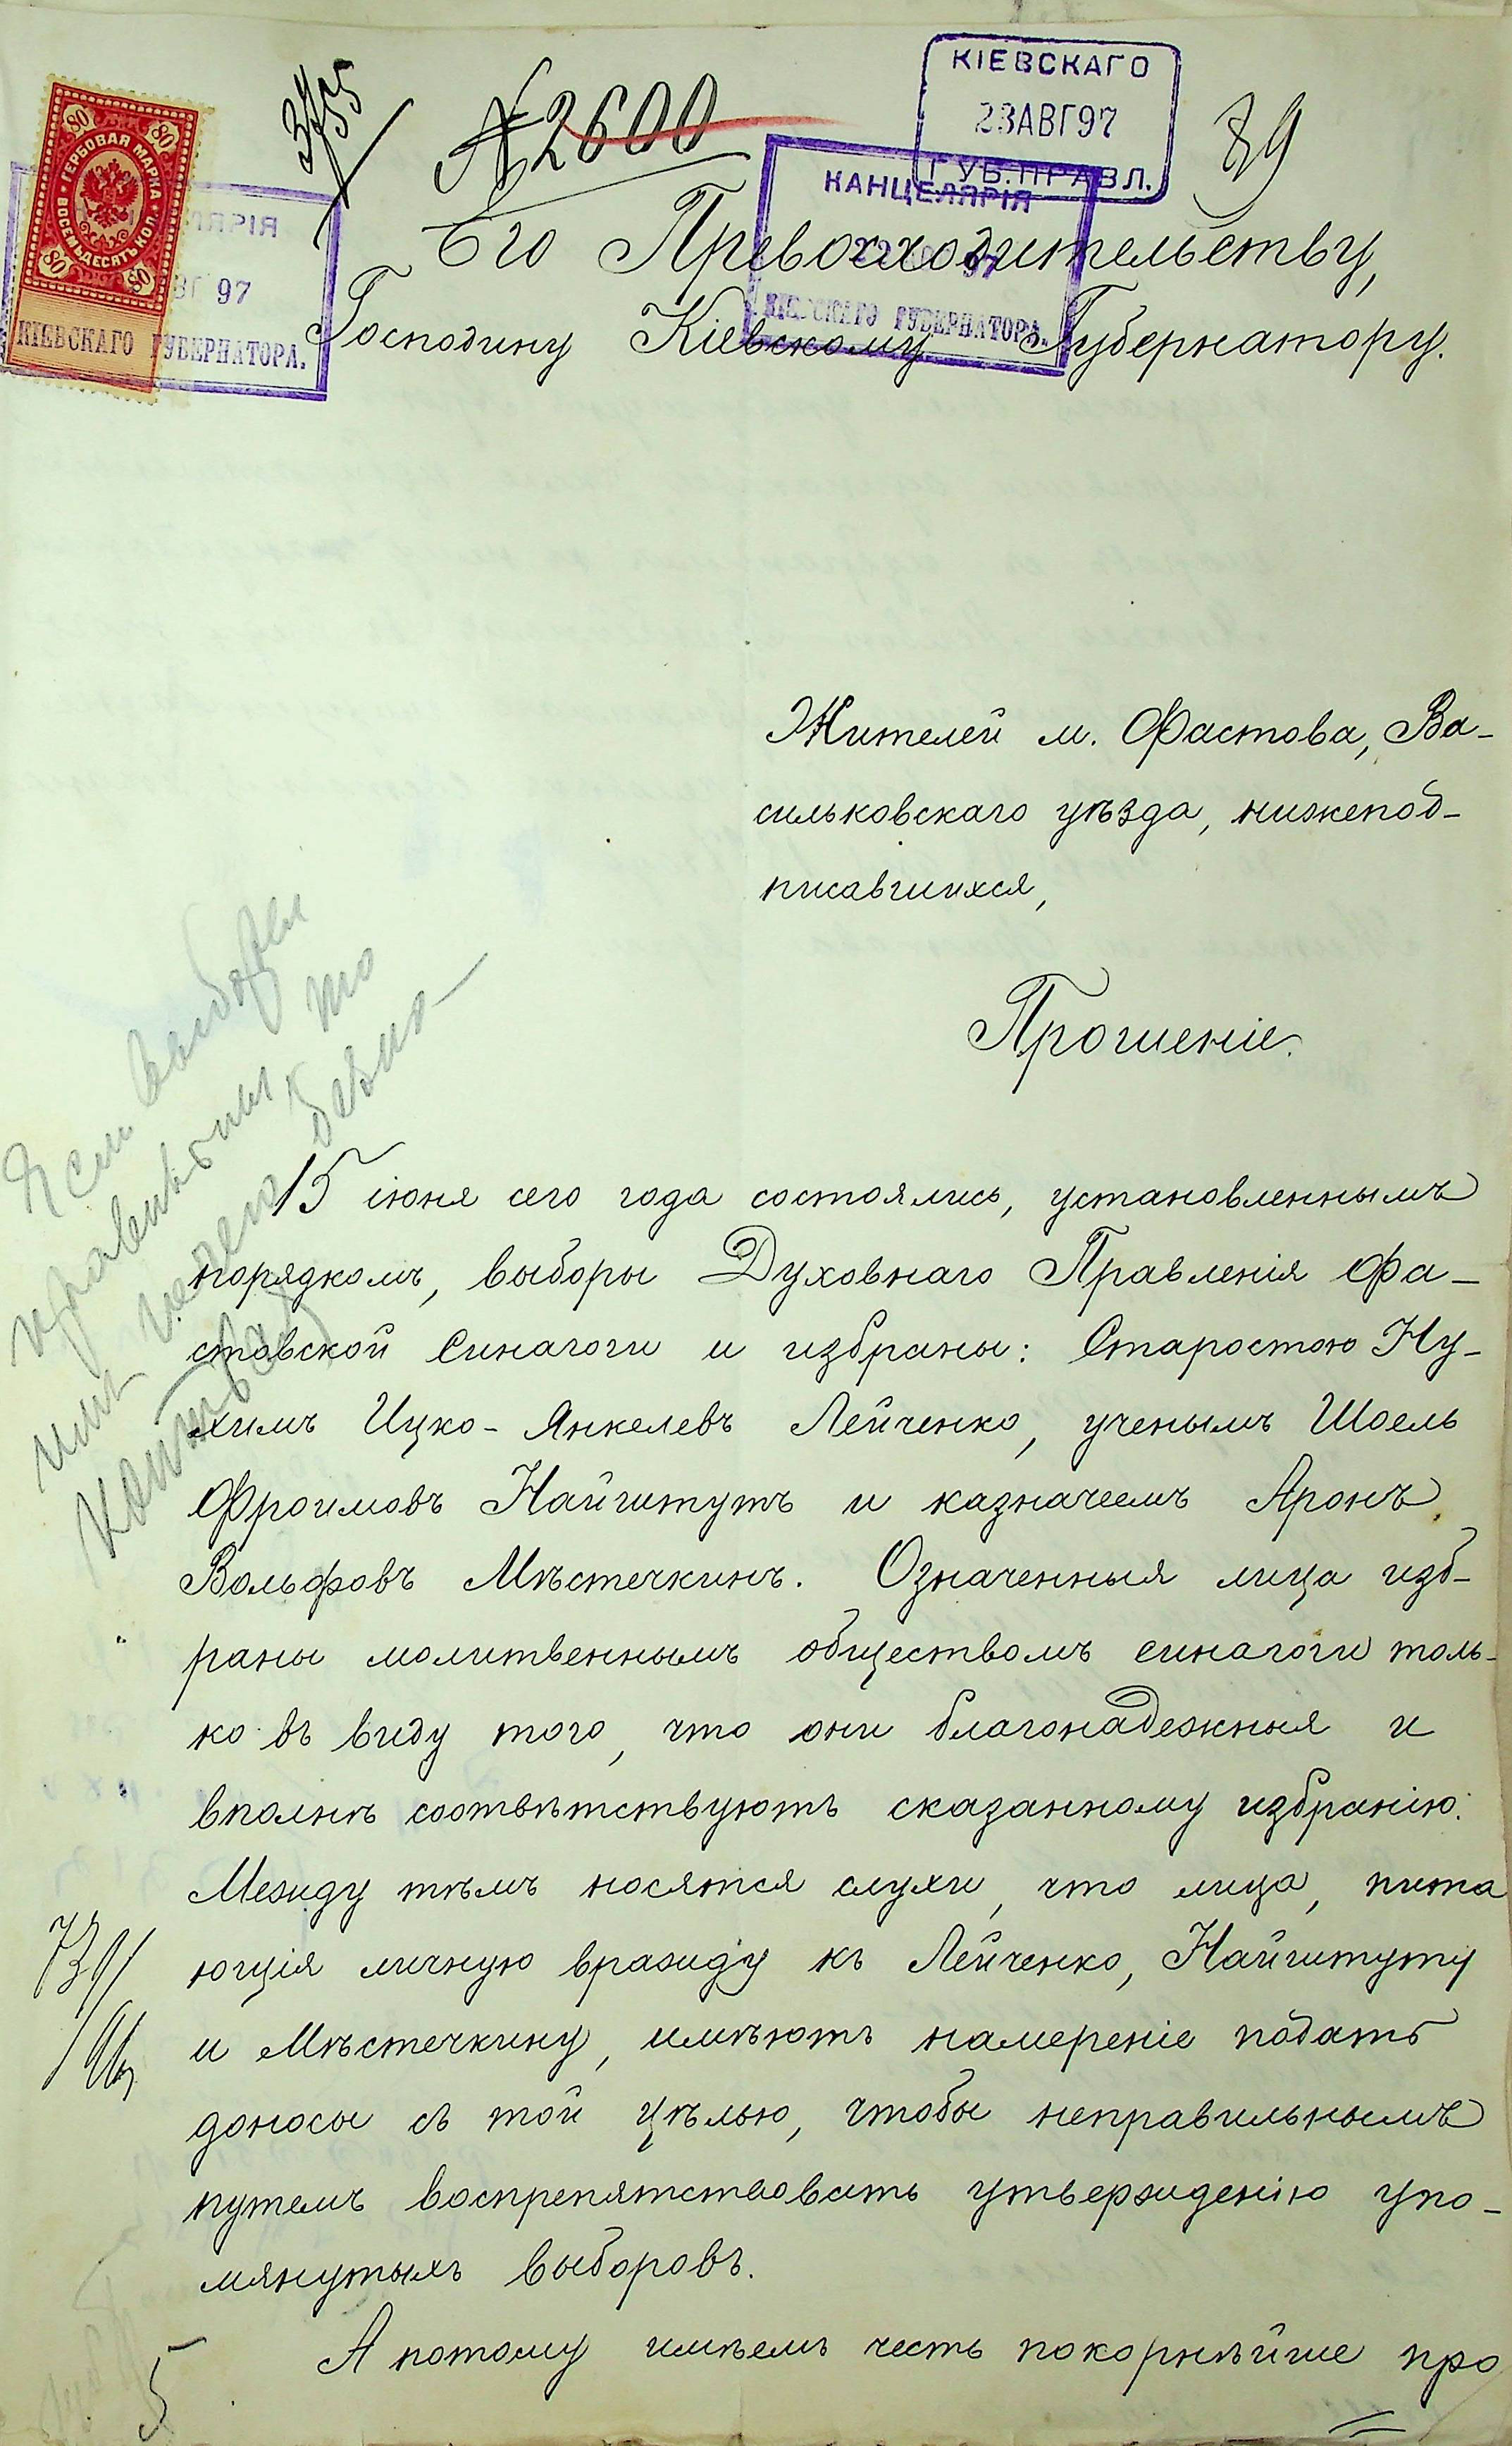 КІЕВСКАГО
23 АВГ 97
ГУБ. ПРАВЛ.
ГЕРБОВАЯ МАРКА
ВОСЕМЬДЕСЯТЪ КОП.
80 80
80 80
ЛЯРІЯ
ВГ 97
КІЕВСКАГО ГУБЕРНАТОРА.
№ 2600
89
КАНЦЕЛЯРІЯ
97
КІЕВСКАГО ГУБЕРНАТОРА.
Его Превосходительству,
Господину Кіевскому Губернатору.
Жителей м. Фастова, Ва-
сильковскаго уѣзда, нижепод-
писавшихся,
Прошеніе.
Если выборы
правильны то
15 іюня сего года состоялись, установленнымъ
порядкомъ, выборы Духовнаго Правленія Фа-
стовской Синагоги и избраны: Старостою Ну-
химъ Ицко-Янкелевъ Лейченко, ученымъ Шоель
Фроимовъ Найштутъ и казначеемъ Аронъ
Вольфовъ Мѣстечкинъ. Означенныя лица изб-
раны молитвеннымъ обществомъ синагоги толь-
ко въ виду того, что они благонадежныя и
вполнѣ соотвѣтствуютъ сказанному избранію.
Между тѣмъ носятся слухи, что лица, пита
ющія личную вражду къ Лейченко, Найштуту
и Мѣстечкину, имѣютъ намереніе подать
доносы съ той цѣлью, чтобы неправильнымъ
путемъ воспрепятствовать утвержденію упо-
мянутыхъ выборовъ.
А потому имѣемъ честь покорнѣйше про
5